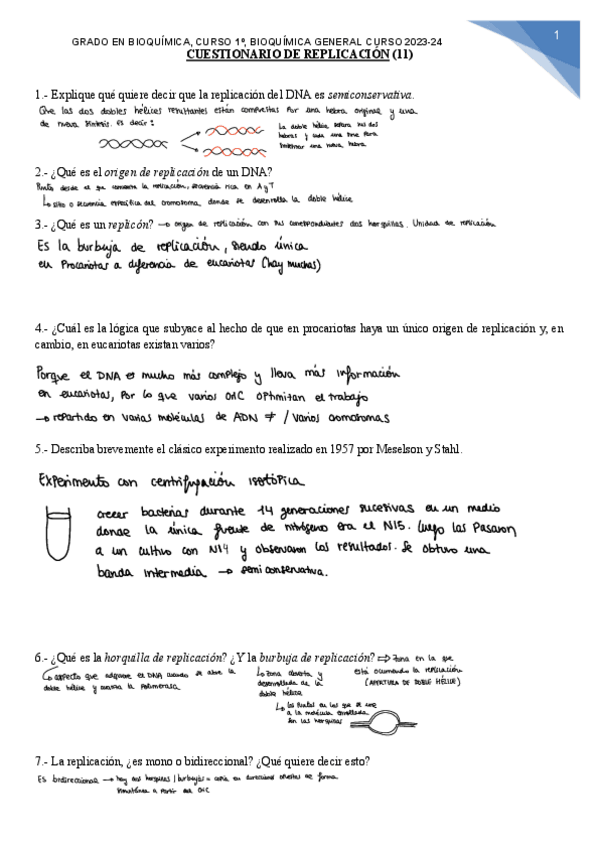 1
GRADO EN BIOQUÍMICA, CURSO 1º, BIOQUÍMICA GENERAL CURSO 2023-24
CUESTIONARIO DE REPLICACIÓN (11)
1.- Explique qué quiere decir que la replicación del DNA es semiconservativa.
Que las dos dobles hélices resultantes están compuestas por una hebra original y una
de nueva síntesis. es decir:
La doble hélice separa sus dos
hebras y cada una sirve para
sintetizar una nueva hebra
2.- ¿Qué es el origen de replicación de un DNA?
Punto desde el que comienza la replicación, secuencia rica en A y T
↳ sitio o secuencia específica del cromosoma donde se desenrolla la doble hélice
3.- ¿Qué es un replicón? → origen de replicación con sus correspondientes dos horquillas. Unidad de replicación
Es la burbuja de replicación, siendo única
en Procariotas a diferencia de eucariotas (hay muchas)
4.- ¿Cuál es la lógica que subyace al hecho de que en procariotas haya un único origen de replicación y, en
cambio, en eucariotas existan varios?
Porque el DNA es mucho más complejo y lleva más información
en eucariotas, Por lo que varios OriC optimizan el trabajo
→ repartido en varias moléculas de ADN ≠ / varios cromosomas
5.- Describa brevemente el clásico experimento realizado en 1957 por Meselson y Stahl.
Experimento con centrifugación isotópica
crecer bacterias durante 14 generaciones sucesivas en un medio
donde la única fuente de nitrógeno era el N15. luego las Pasaron
a un cultivo con N14 y observaron los resultados. Se obtuvo una
banda intermedia → semiconservativa.
6.- ¿Qué es la horquilla de replicación? ¿Y la burbuja de replicación? ⇒ Zona en la que
está ocurriendo la replicación
(APERTURA DE DOBLE HÉLICE)
aspecto que adquiere el DNA cuando se abre la
doble hélice y avanza la polimerasa
↳ Zona abierta y
desenrollada de la
doble hélice
↳ los puntos en los que se une
a la molécula enrollada
son las horquillas
7.- La replicación, ¿es mono o bidireccional? ¿Qué quiere decir esto?
Es bidireccional → hay dos horquillas / burbujas = copia en direcciones opuestas de forma
simultánea a partir del OriC